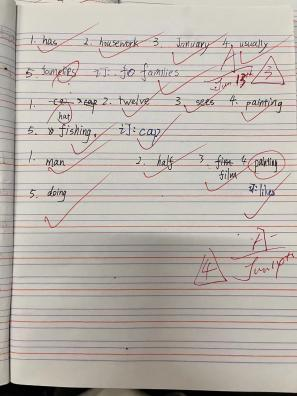 1. has 2. housework 3. January 4. usually
5. 订: families
Jun 13th 3
1. cap 2. twelve 3. sees 4. painting
hat
5. fishing, 订: cap
1. man 2. half 3. film 4. painting
film
5. doing 订: likes
4